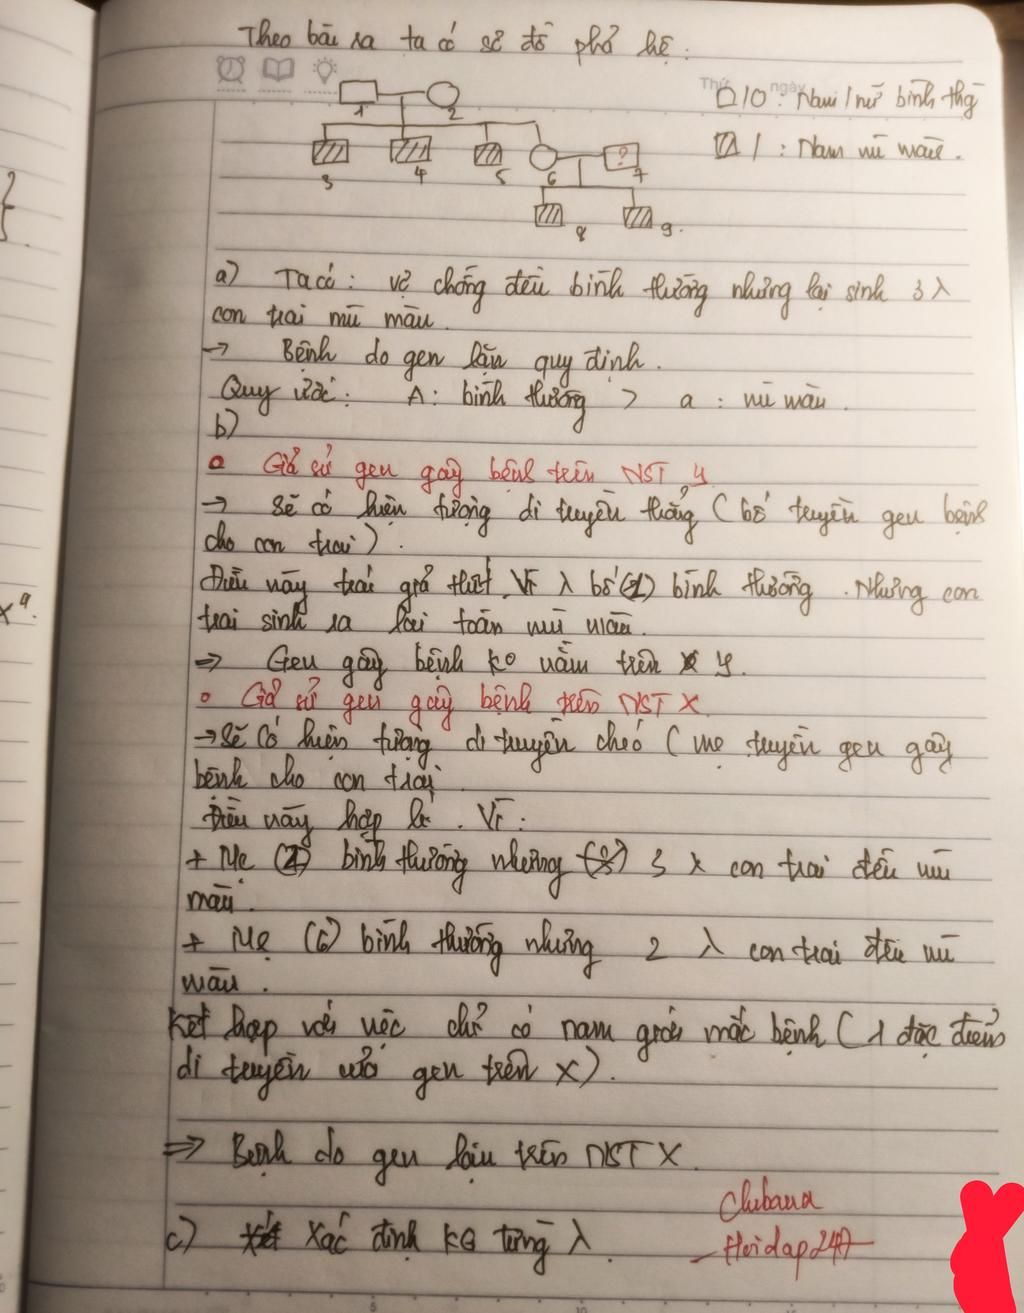 Theo bài ra ta có sơ đồ phả hệ:
Thứ ngày
□/O: Nam/nữ bình thg
1 2
/ : Nam mù màu.
?
3 4 5 6 7
8 9.
a) Ta có: vợ chồng đều bình thường nhưng lại sinh 3 λ
con trai mù màu.
→ Bệnh do gen lặn quy định.
Quy ước: A: bình thường > a: mù màu.
b)
Giả sử gen gây bệnh trên NST Y
→ Sẽ có hiện tượng di truyền thẳng (bố truyền gen bệnh
cho con trai).
Điều này trái giả thiết. Vì λ bố (1) bình thường. Nhưng con
xa.
trai sinh ra lại toàn mù màu.
⇒ Gen gây bệnh ko nằm trên Y.
Giả sử gen gây bệnh trên NST X
→ Sẽ có hiện tượng di truyền chéo (mẹ truyền gen gây
bệnh cho con trai
Điều này hợp lí. Vì:
+ Mẹ (2) bình thường nhưng 3 λ con trai đều mù
màu.
+ Mẹ (6) bình thường nhưng 2 λ con trai đều mù
màu.
Kết hợp với việc chỉ có nam giới mắc bệnh (1 đặc điểm
di truyền của gen trên X).
⇒ Bệnh do gen lặn trên NST X.
Chibana
c) Xác định KG từng λ.
Hoidap247